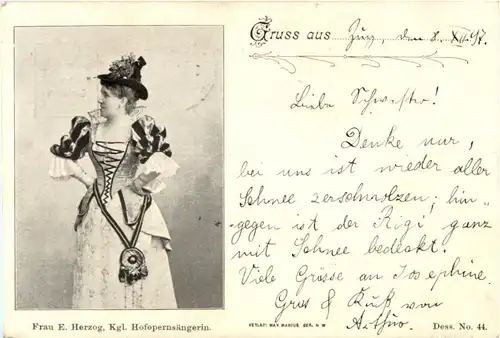 Gruss aus Zug, den 8. XII. 97.
Liebe Schwester!
Denke nur,
bei uns ist wieder aller
Schnee zerschmolzen; hin„
gegen ist der Rigi ganz
mit Schnee bedeckt.
Viele Grüsse an Josephine
Gruss & Kuß von
Arthur.
Frau E. Herzog, Kgl. Hofopernsängerin.
VERLAG: MAX MARCUS BER. N W
Dess. No. 44.